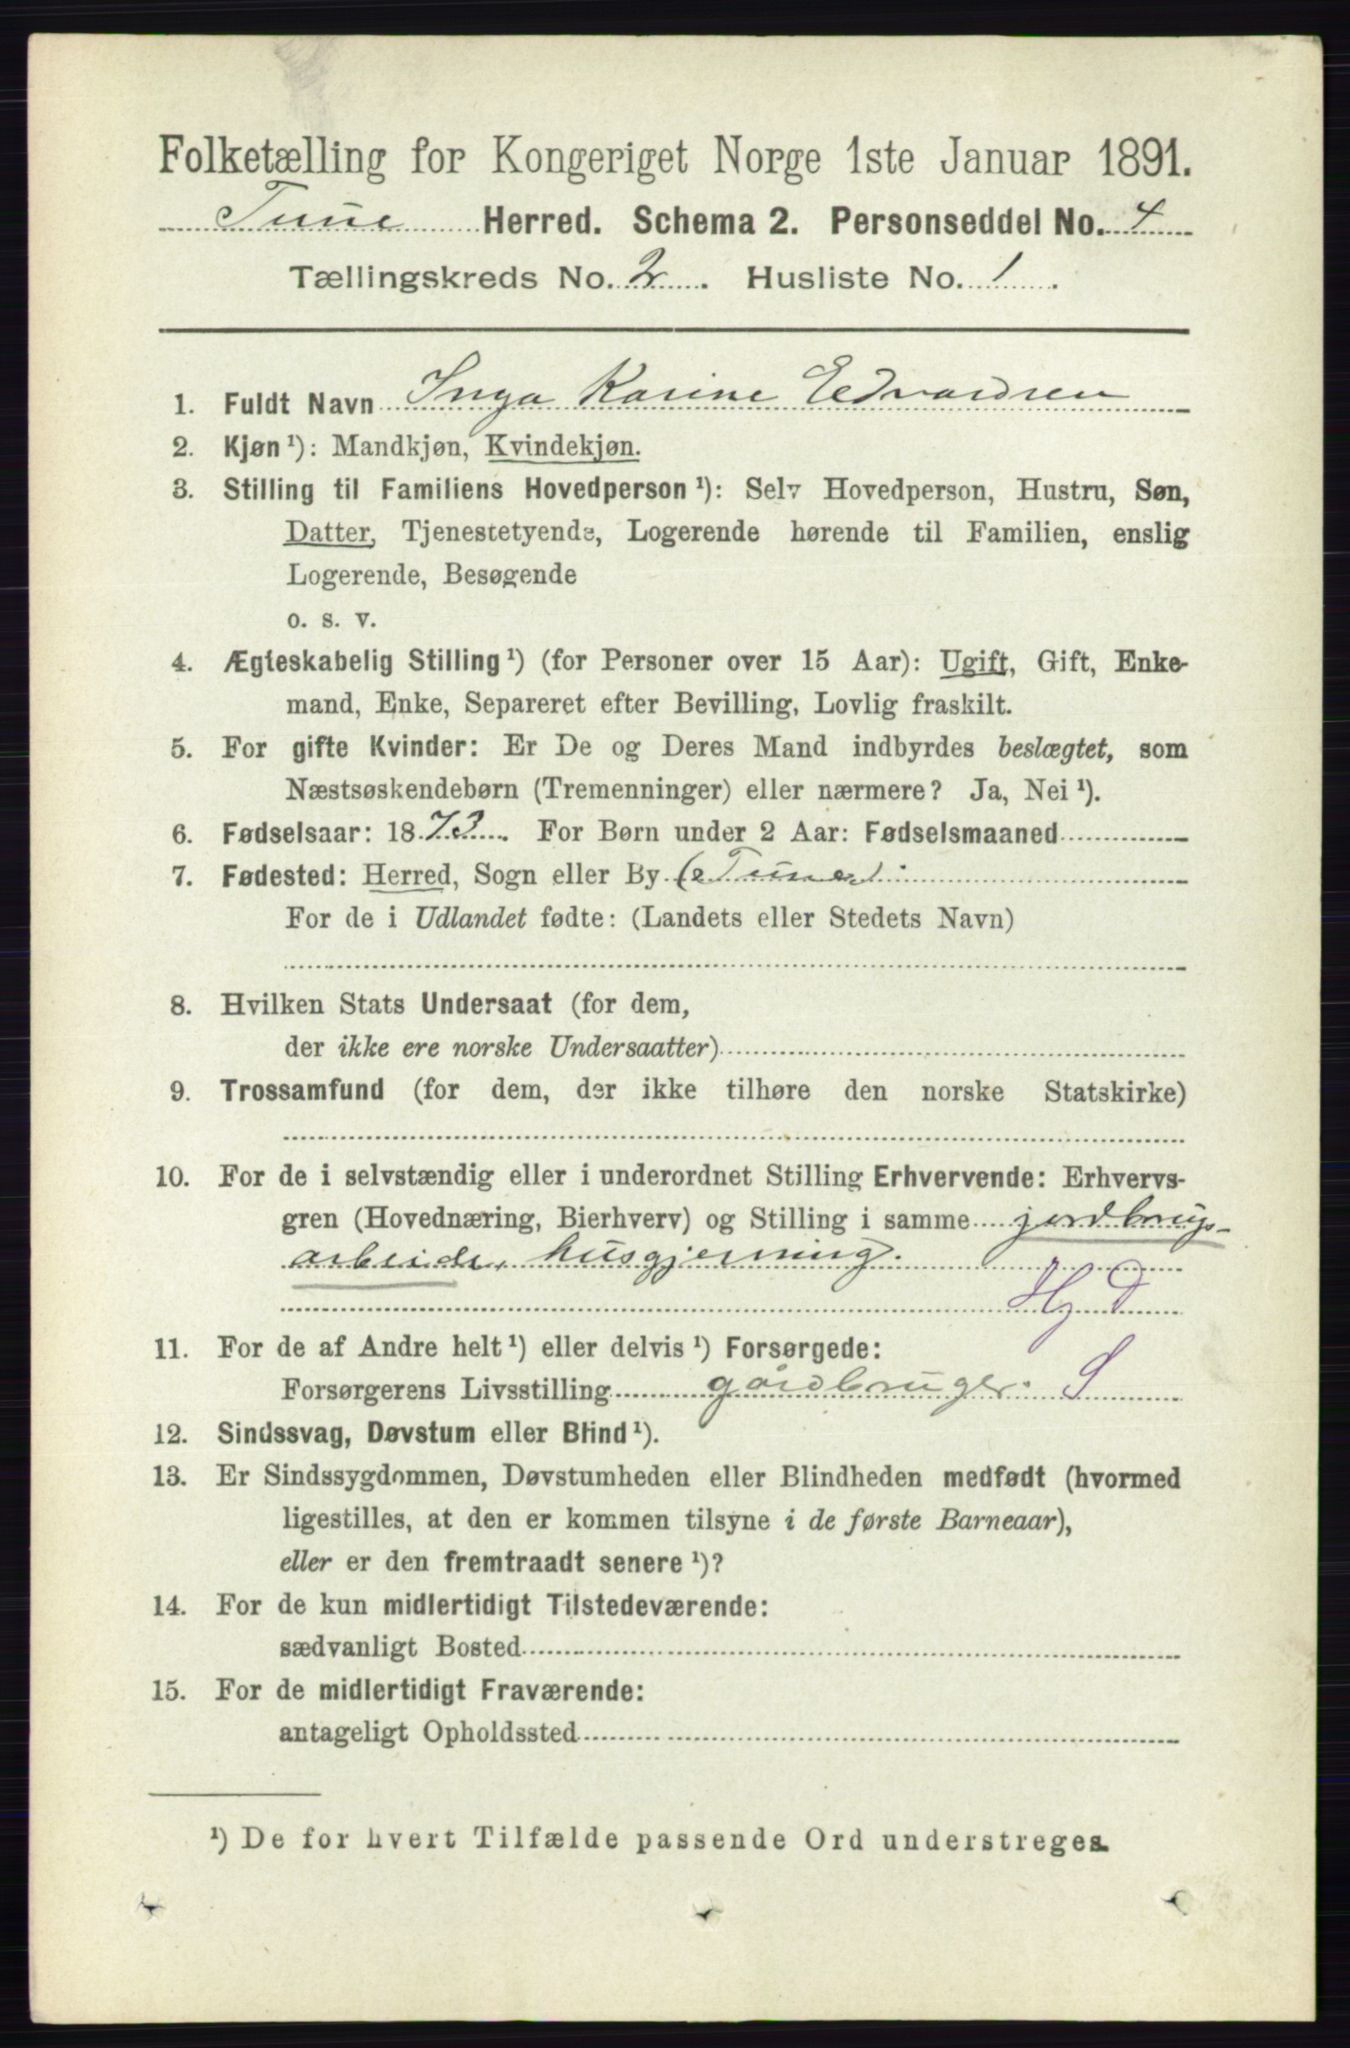 Folketælling for Kongeriget Norge 1ste Januar 1891.
Tune Herred. Schema 2. Personseddel No. 4
Tællingskreds No. 2. Husliste No. 1.
1. Fuldt Navn Inga Karine Edvardsen
2. Kjøn¹): Mandkjøn, Kvindekjøn.
3. Stilling til Familiens Hovedperson¹): Selv Hovedperson, Hustru, Søn,
Datter, Tjenestetyende, Logerende hørende til Familien, enslig
Logerende, Besøgende
o. s. v.
4. Ægteskabelig Stilling¹) (for Personer over 15 Aar): Ugift, Gift, Enke-
mand, Enke, Separeret efter Bevilling, Lovlig fraskilt.
5. For gifte Kvinder: Er De og Deres Mand indbyrdes beslægtet, som
Næstsøskendebørn (Tremenninger) eller nærmere? Ja, Nei¹).
6. Fødselsaar: 1873. For Børn under 2 Aar: Fødselsmaaned
7. Fødested: Herred, Sogn eller By Tune
For de i Udlandet fødte: (Landets eller Stedets Navn)
8. Hvilken Stats Undersaat (for dem,
der ikke ere norske Undersaatter)
9. Trossamfund (for dem, der ikke tilhøre den norske Statskirke)
10. For de i selvstændig eller i underordnet Stilling Erhvervende: Erhvervs-
gren (Hovednæring, Bierhverv) og Stilling i samme jordbrugs-
arbeide, husgjerning.
Hj D
11. For de af Andre helt¹) eller delvis¹) Forsørgede:
Forsørgerens Livsstilling gårdbruger. S
12. Sindssvag, Døvstum eller Blind¹).
13. Er Sindssygdommen, Døvstumheden eller Blindheden medfødt (hvormed
ligestilles, at den er kommen tilsyne i de første Barneaar),
eller er den fremtraadt senere¹)?
14. For de kun midlertidigt Tilstedeværende:
sædvanligt Bosted
15. For de midlertidigt Fraværende:
antageligt Opholdssted
¹) De for hvert Tilfælde passende Ord understreges.